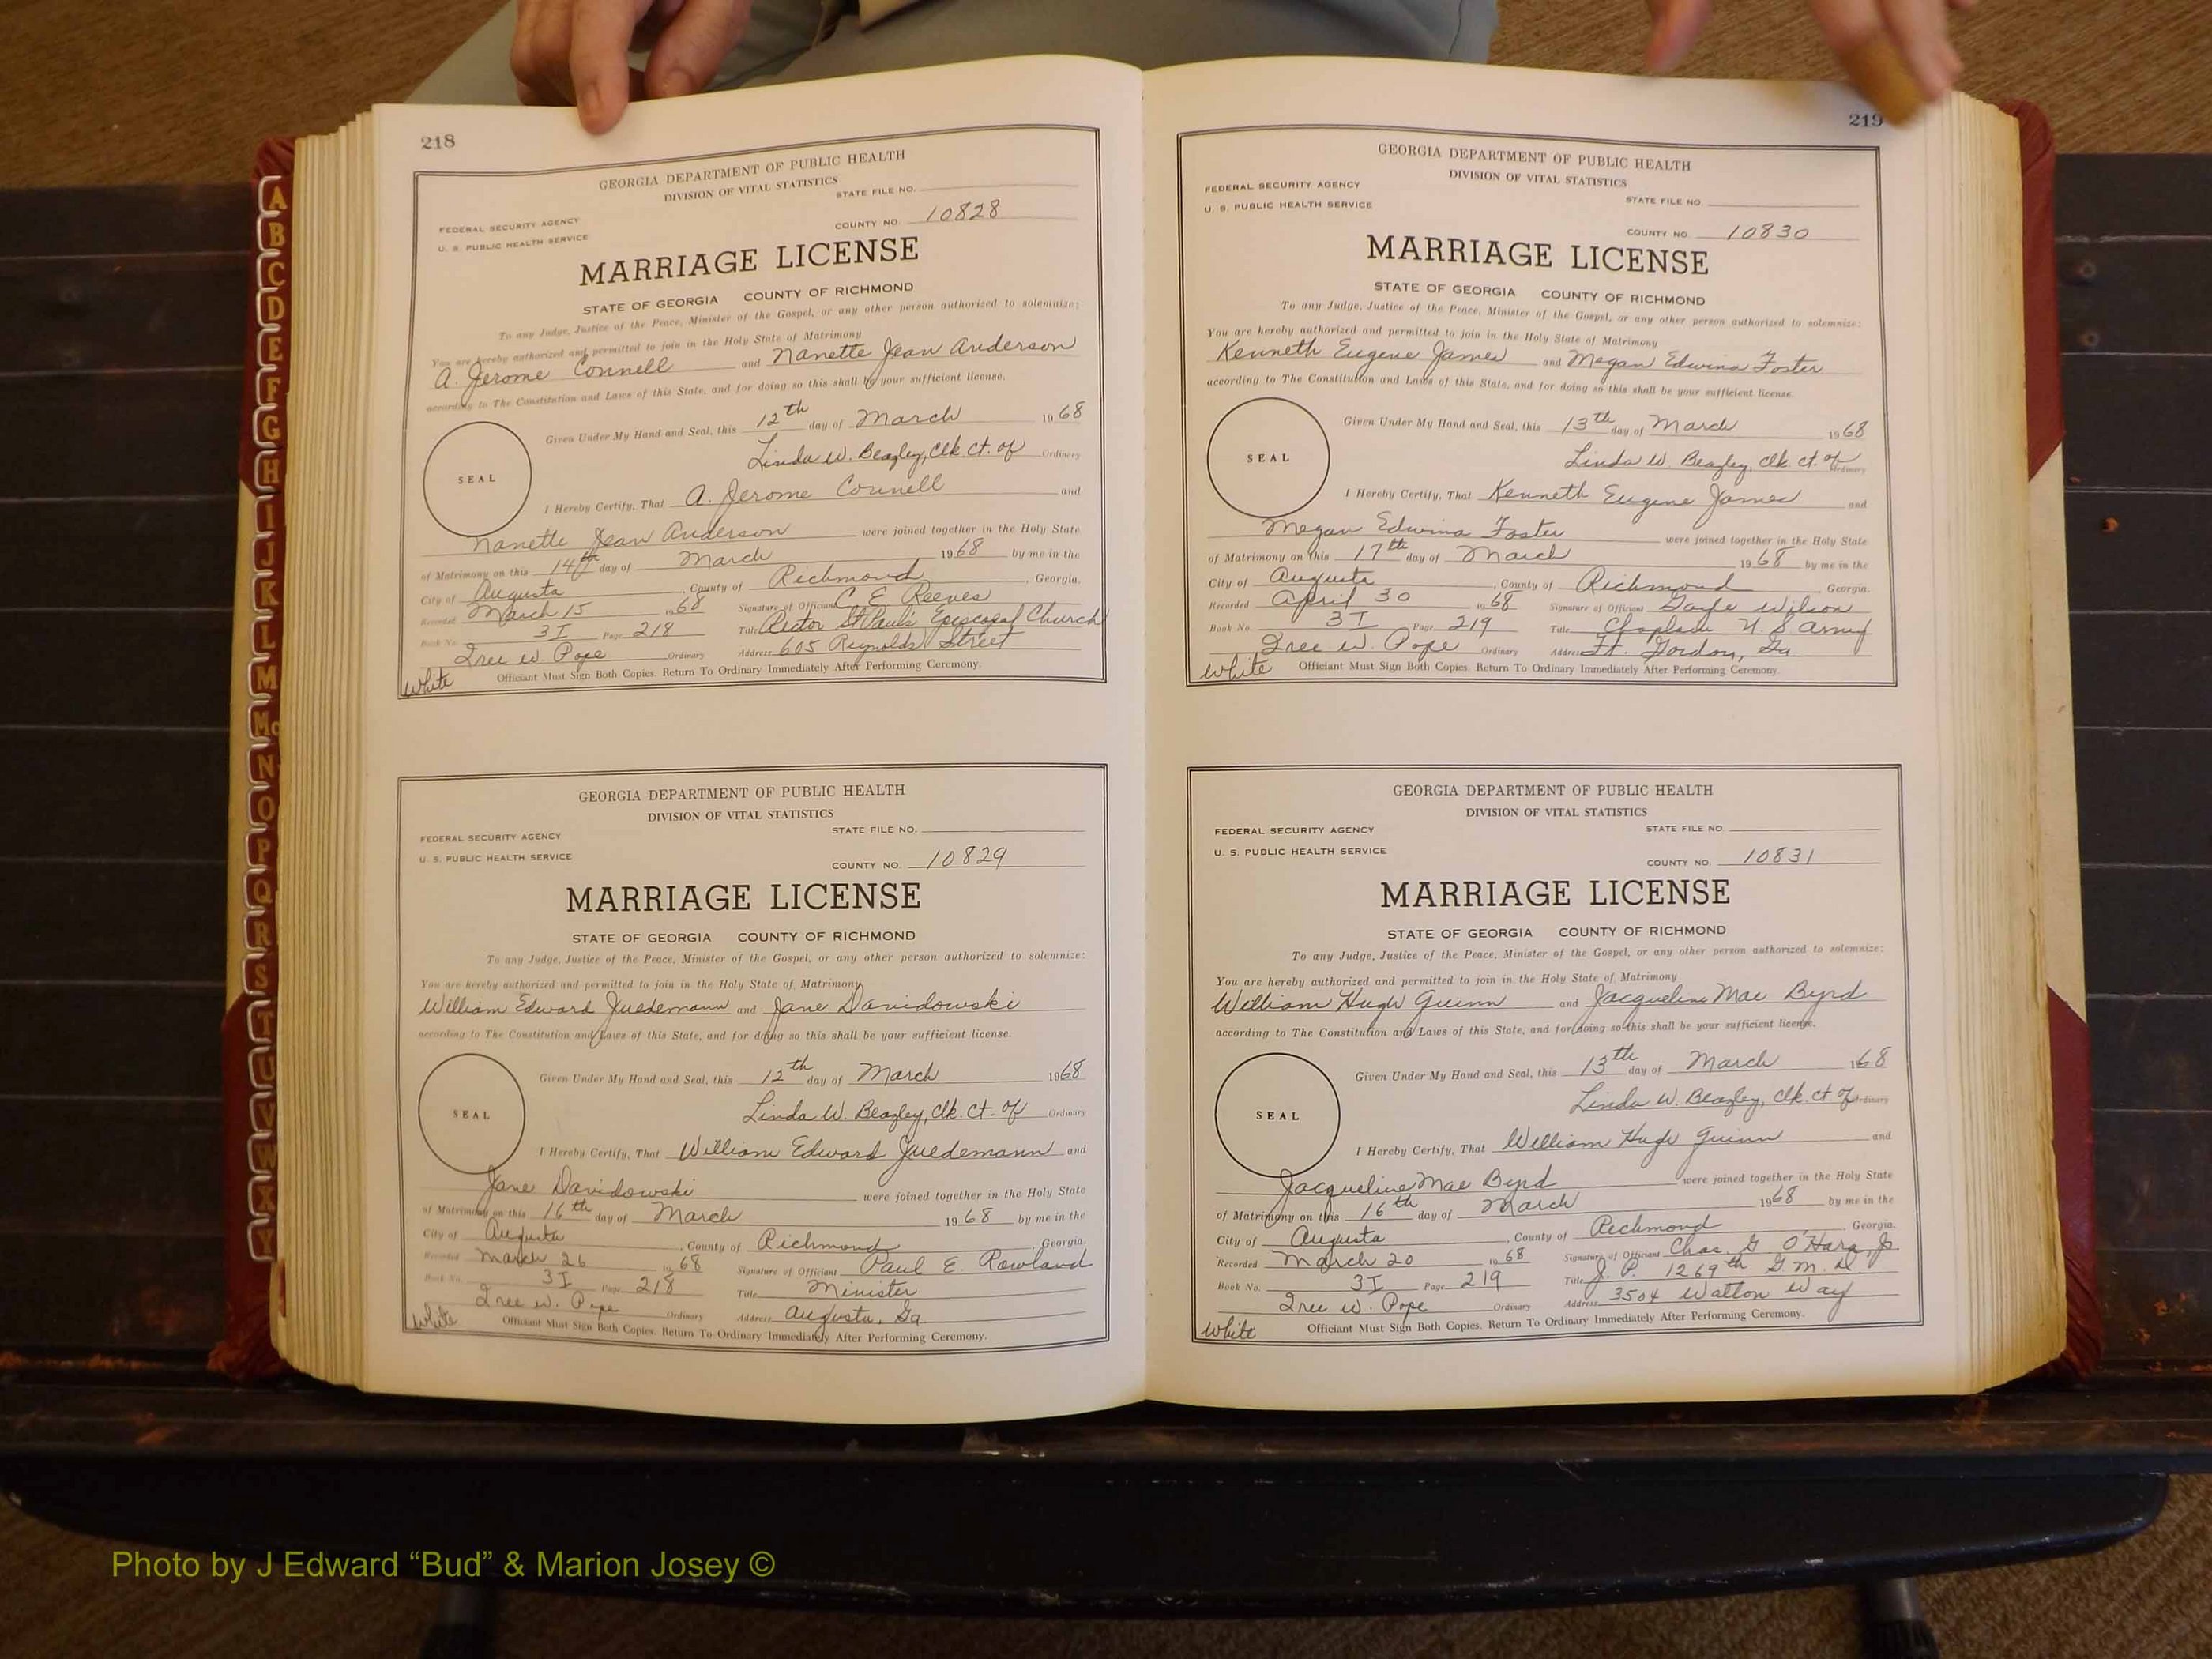 218
GEORGIA DEPARTMENT OF PUBLIC HEALTH
DIVISION OF VITAL STATISTICS
STATE FILE NO.
FEDERAL SECURITY AGENCY
U. S. PUBLIC HEALTH SERVICE
COUNTY NO. 10828
MARRIAGE LICENSE
STATE OF GEORGIA COUNTY OF RICHMOND
To any Judge, Justice of the Peace, Minister of the Gospel, or any other person authorized to solemnize:
You are hereby authorized and permitted to join in the Holy State of Matrimony
A. Jerome Connell and Nanette Jean Anderson
according to The Constitution and Laws of this State, and for doing so this shall be your sufficient license.
Given Under My Hand and Seal, this 12th day of March 1968
Linda W. Beazley, Clk. Ct. of Ordinary
SEAL
I Hereby Certify, That A. Jerome Connell and
Nanette Jean Anderson were joined together in the Holy State
of Matrimony on this 14th day of March 1968 by me in the
City of Augusta, County of Richmond, Georgia.
Recorded March 15 1968 Signature of Officiant C E Reeves
Book No. 3I Page 218 Title Rector St Paul's Episcopal Church
Iree W. Pope Ordinary Address 605 Reynolds Street
White Officiant Must Sign Both Copies. Return To Ordinary Immediately After Performing Ceremony.
GEORGIA DEPARTMENT OF PUBLIC HEALTH
DIVISION OF VITAL STATISTICS
STATE FILE NO.
FEDERAL SECURITY AGENCY
U. S. PUBLIC HEALTH SERVICE
COUNTY NO. 10829
MARRIAGE LICENSE
STATE OF GEORGIA COUNTY OF RICHMOND
To any Judge, Justice of the Peace, Minister of the Gospel, or any other person authorized to solemnize:
You are hereby authorized and permitted to join in the Holy State of Matrimony
William Edward Juedemann and Jane Davidowski
according to The Constitution and Laws of this State, and for doing so this shall be your sufficient license.
Given Under My Hand and Seal, this 12th day of March 1968
Linda W. Beazley, Clk. Ct. of Ordinary
SEAL
I Hereby Certify, That William Edward Juedemann and
Jane Davidowski were joined together in the Holy State
of Matrimony on this 16th day of March 1968 by me in the
City of Augusta, County of Richmond, Georgia.
Recorded March 26 1968 Signature of Officiant Paul E. Rowland
Book No. 3I Page 218 Title Minister
Iree W. Pope Ordinary Address Augusta, Ga
White Officiant Must Sign Both Copies. Return To Ordinary Immediately After Performing Ceremony.
219
GEORGIA DEPARTMENT OF PUBLIC HEALTH
DIVISION OF VITAL STATISTICS
FEDERAL SECURITY AGENCY
STATE FILE NO.
U. S. PUBLIC HEALTH SERVICE
COUNTY NO. 10830
MARRIAGE LICENSE
STATE OF GEORGIA COUNTY OF RICHMOND
To any Judge, Justice of the Peace, Minister of the Gospel, or any other person authorized to solemnize:
You are hereby authorized and permitted to join in the Holy State of Matrimony
Kenneth Eugene James and Megan Edwina Foster
according to The Constitution and Laws of this State, and for doing so this shall be your sufficient license.
Given Under My Hand and Seal, this 13th day of March 1968
Linda W. Beazley, Clk. Ct. of Ordinary
SEAL
I Hereby Certify, That Kenneth Eugene James and
Megan Edwina Foster were joined together in the Holy State
of Matrimony on this 17th day of March 1968 by me in the
City of Augusta, County of Richmond Georgia.
Recorded April 30 1968 Signature of Officiant Gayle Wilson
Book No. 3I Page 219 Title Chaplain U. S Army
Iree W. Pope Ordinary Address Ft. Gordon, Ga
White Officiant Must Sign Both Copies. Return To Ordinary Immediately After Performing Ceremony.
GEORGIA DEPARTMENT OF PUBLIC HEALTH
DIVISION OF VITAL STATISTICS
FEDERAL SECURITY AGENCY
STATE FILE NO.
U. S. PUBLIC HEALTH SERVICE
COUNTY NO. 10831
MARRIAGE LICENSE
STATE OF GEORGIA COUNTY OF RICHMOND
To any Judge, Justice of the Peace, Minister of the Gospel, or any other person authorized to solemnize:
You are hereby authorized and permitted to join in the Holy State of Matrimony
William Hugh Guinn and Jacqueline Mae Byrd
according to The Constitution and Laws of this State, and for doing so this shall be your sufficient license.
Given Under My Hand and Seal, this 13th day of March 1968
Linda W. Beazley, Clk. Ct of Ordinary
SEAL
I Hereby Certify, That William Hugh Guinn and
Jacqueline Mae Byrd were joined together in the Holy State
of Matrimony on this 16th day of March 1968 by me in the
City of Augusta, County of Richmond, Georgia.
Recorded March 20 1968 Signature of Officiant Chas. G O'Hara, Jr
Book No. 3I Page 219 Title J. P. 1269th G. M. D
Iree W. Pope Ordinary Address 3504 Walton Way
White Officiant Must Sign Both Copies. Return To Ordinary Immediately After Performing Ceremony.
A
B
C
D
E
F
G
H
I
J
K
L
M
Mc
N
O
P
Q
R
S
T
U
V
W
X
Y
Photo by J Edward “Bud” & Marion Josey ©